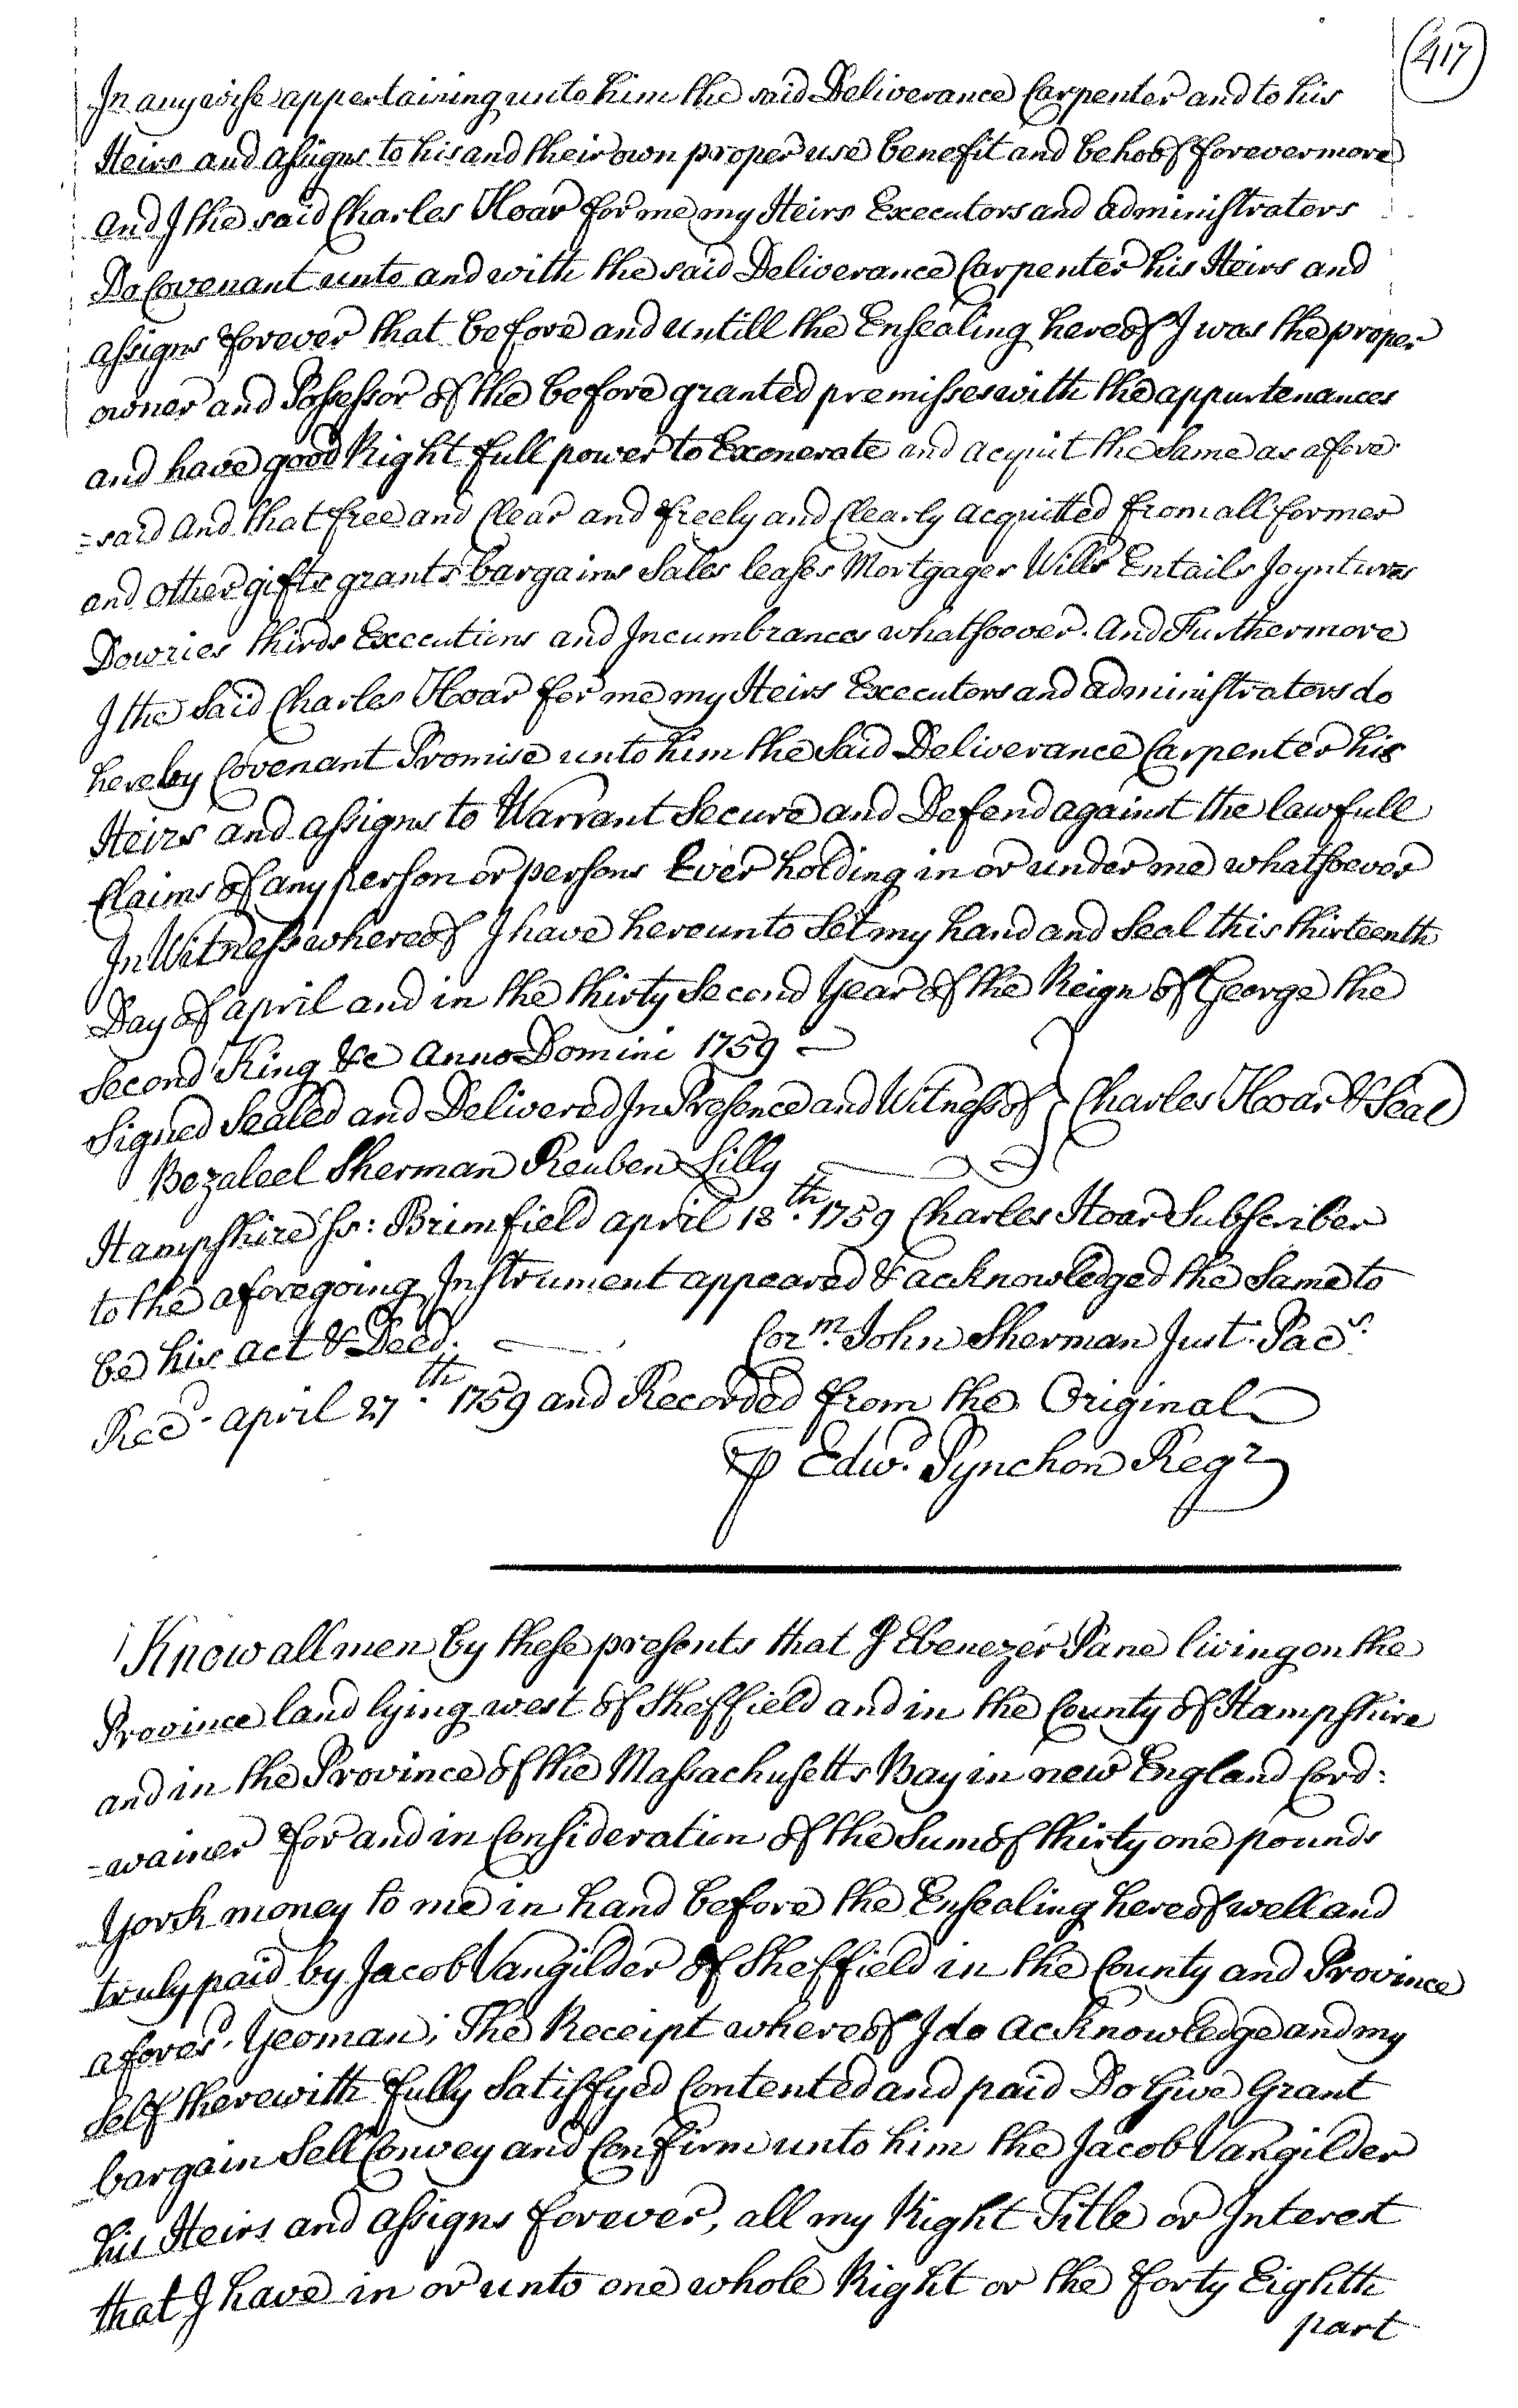 (417)
In any wise appertaining unto him the said Deliverance Carpenter and to his
Heirs and assigns to his and their own proper use benefit and behoof forevermore
and I the said Charles Hoar for me my Heirs Executors and administrators
Do Covenant unto and with the said Deliverance Carpenter his Heirs and
assigns forever that before and untill the Ensealing hereof I was the proper
owner and Possessor of the before granted premisses with the appurtenances
and have good Right full power to Exonerate and acquit the Same as afore
=said And that free and Clear and freely and Clearly acquitted from all former
and other gifts grants bargains Sales leases Mortgages Wills Entails Joyntures
Dowries thirds Executions and Incumbrances whatsoever. And Furthermore
I the Said Charles Hoar for me my Heirs Executors and administrators do
hereby Covenant Promise unto him the Said Deliverance Carpenter his
Heirs and assigns to Warrant Secure and Defend against the lawfull
Claims of any person or persons Ever holding in or under me whatsoever
In Witness whereof I have hereunto Set my hand and Seal this thirteenth
Day of april and in the thirty Second Year of the Reign of George the
Second King &c Anno Domini 1759
Signed Sealed and Delivered In Presence and Witness of } Charles Hoar & Seal
Bezaleel Sherman Reuben Lilly
Hampshire ss: Brimfield april 18th. 1759 Charles Hoar Subscriber
to the aforegoing Instrument appeared & acknowledged the Same to
be his act & Deed. Corm. John Sherman Just. Pacs.
Recd. april 27th. 1759 and Recorded from the Original
⅌ Edwd. Pynchon Regr
Know all men by these presents that I Ebenezer Pane living on the
Province land lying west of Sheffield and in the County of Hampshire
and in the Province of the Massachusetts Bay in new England Cord:
=wainer for and in Consideration of the Sum of thirty one pounds
York money to me in hand before the Ensealing hereof well and
truly paid by Jacob Vangilder of Sheffield in the County and Province
aforesd. Yeoman; The Receipt whereof I do acknowledge and my
Self therewith fully Satisfyed Contented and paid Do Give Grant
bargain Sell Convey and Confirm unto him the Jacob Vangilder
his Heirs and assigns forever, all my Right Title or Interest
that I have in or unto one whole Right or the forty Eighth
part